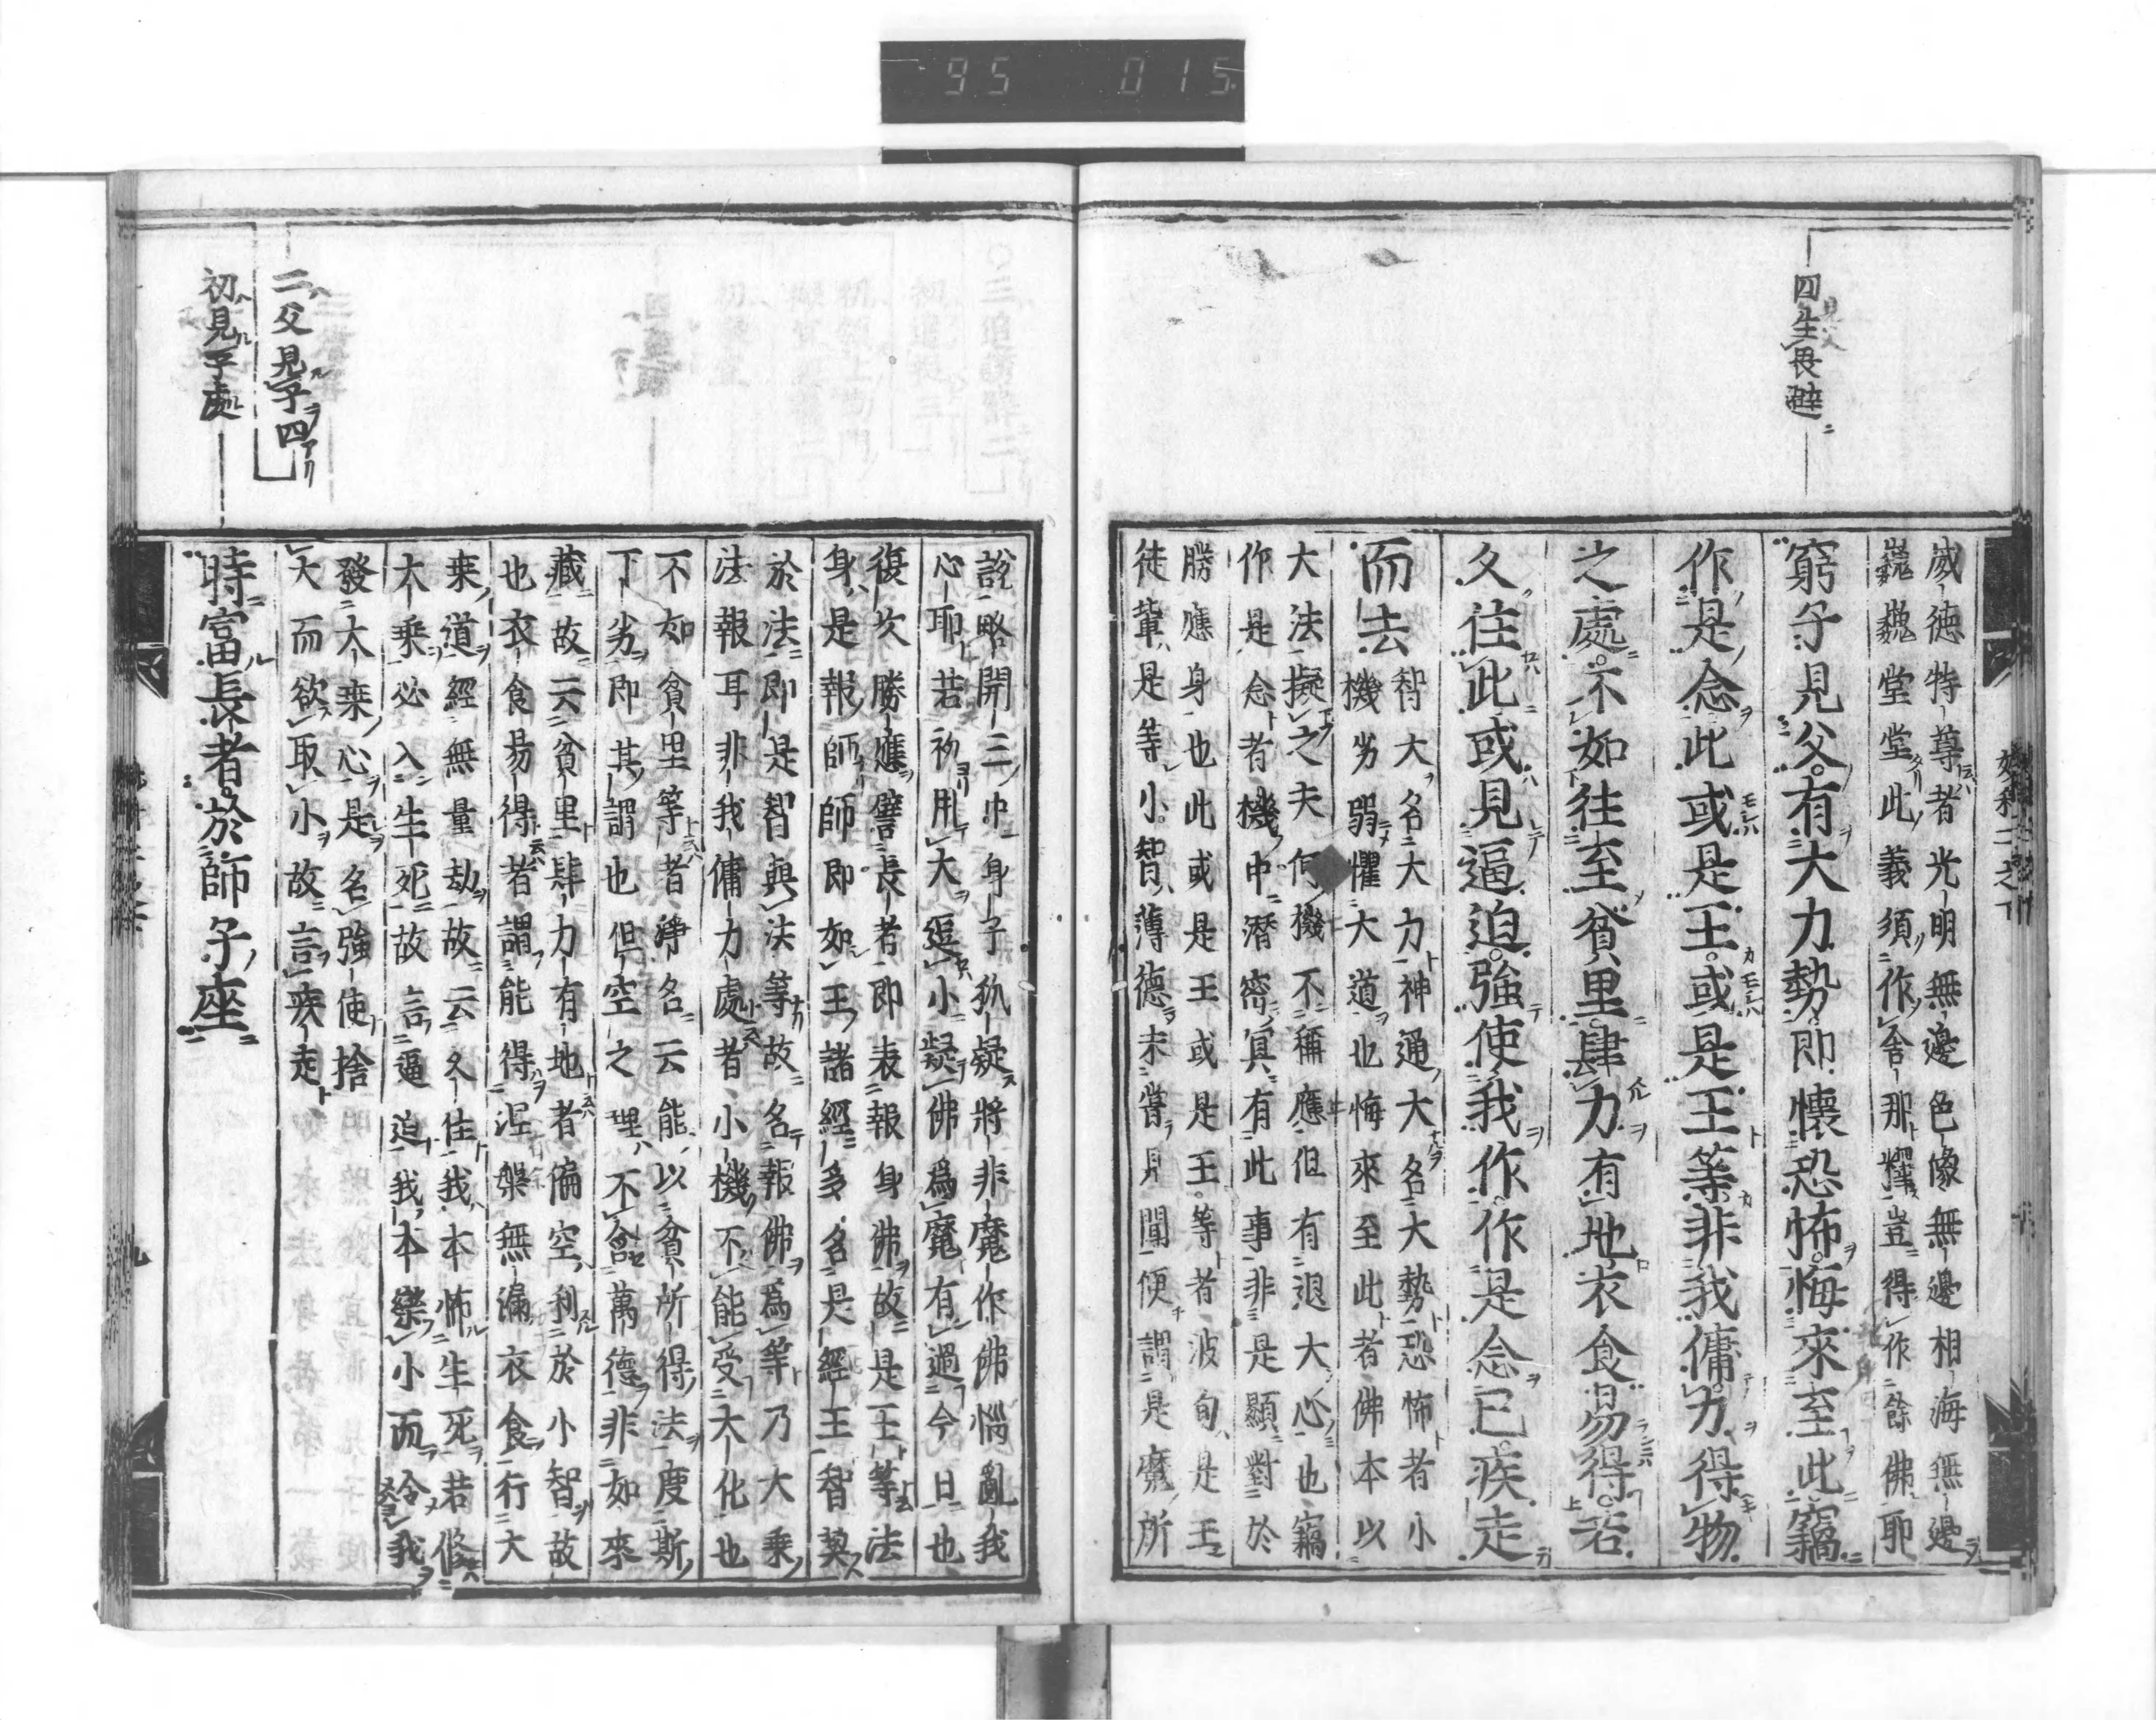 95 015
四生畏避
威德特尊者光明無邊色像無邊相海無邊
巍巍堂堂此義須作舍那釋豈得作餘佛耶
窮子見父有大力勢即懷恐怖悔來至此竊
作是念此或是王或是王等非我傭力得物
之處不如往至貧里肆力有地衣食易得若
久住此或見逼迫強使我作作是念已疾走
而去
智大名大力神通大名大勢恐怖者小
機劣弱懼大道也悔來至此者佛本以
大法擬之夫何機不稱應但有退大心也竊
作是念者機中潛密冥有此事非是顯對於
勝應身也此或是王或是王等者波旬是王
徒輩是等小智薄德未嘗見聞便謂是魔所
說略開三中身子犹疑將非魔作佛惱亂我
心耶若初用大逗小疑佛為魔有過今日也
復次勝應譬長者即表報身佛故是王等法
身是報師師即如王諸經多名是經王智契
於法即是智與法等故名報佛為等乃大乘
法報耳非我傭力處者小機不能受大化也
不如貧里等者淨名云能以貧所得法度斯
下劣即其謂也但空之理不含萬德非如來
藏故云貧里肆力有地者偏空利於小智故
也衣食易得者謂能得涅槃無漏衣食行大
乗道經無量劫故云久住我本怖生死若修
大乗必入生死故言逼迫我本樂小而令我
發大乗心是名強使捨
大而欲取小故言疾走
二父見子四
初見子處
時富長者於師子座